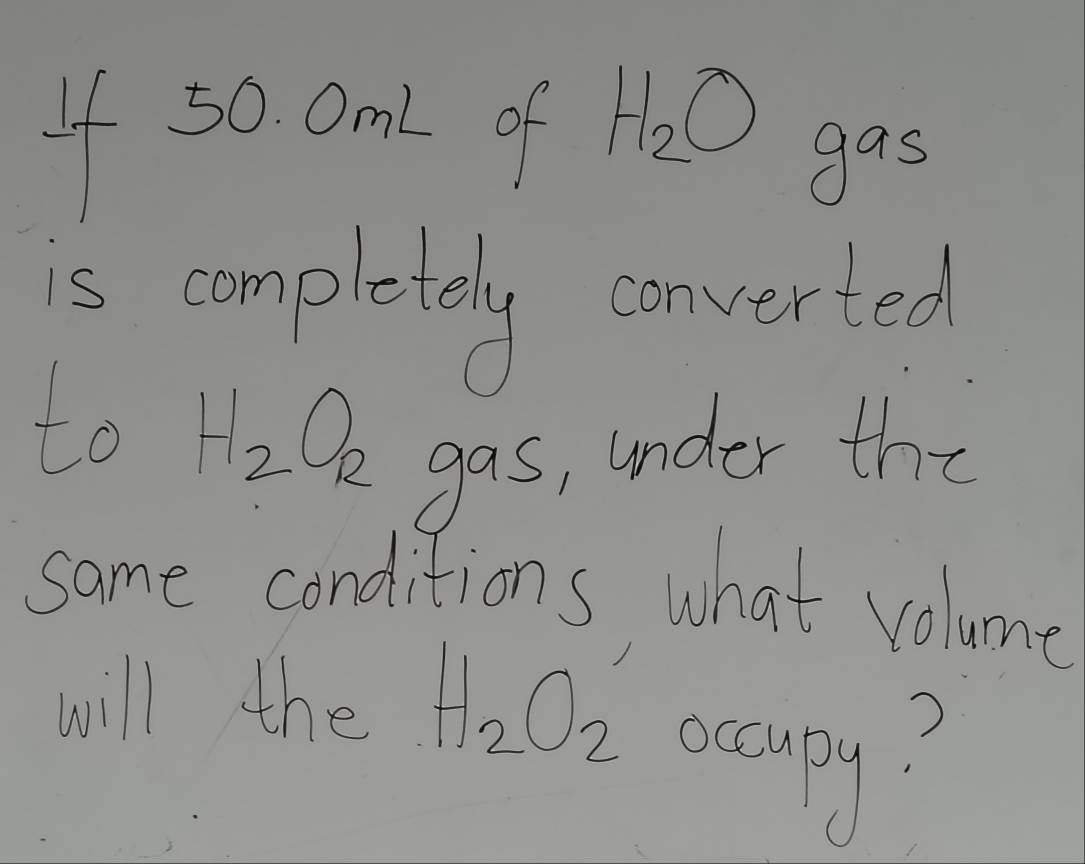 If 50.0mL of H₂O gas
is completely converted
to H₂O₂ gas, under the
same conditions, what volume
will the H₂O₂ occupy?